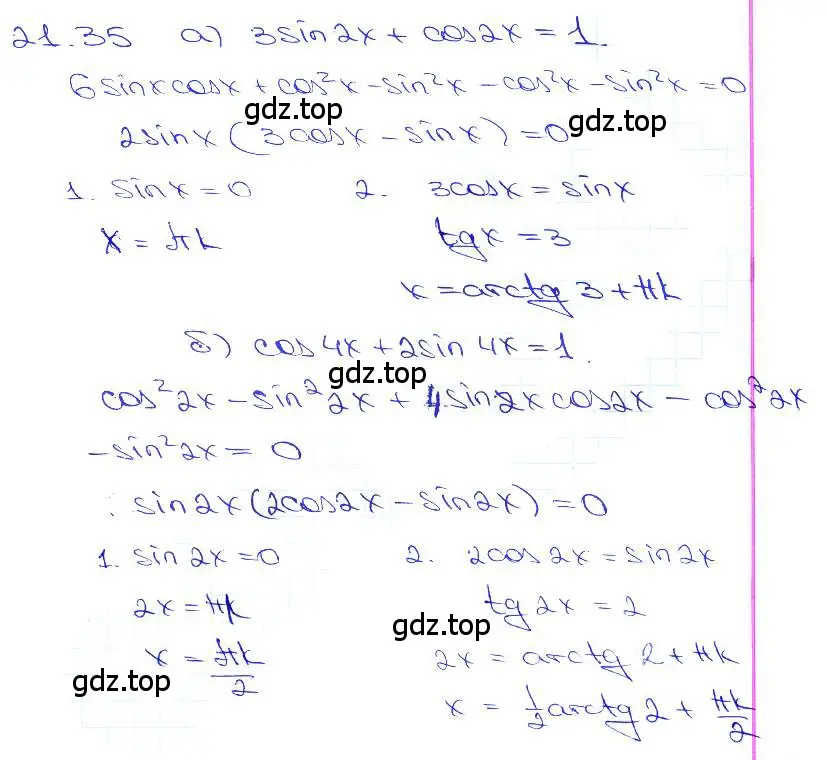 21.35 а) 3sin2x + cos2x = 1.
6sinxcosx + cos²x - sin²x - cos²x - sin²x = 0
gdz.top gdz.top
2sinx(3cosx - sinx) = 0
1. sinx = 0 2. 3cosx = sinx
x = πk tgx = 3
x = arctg 3 + πk
б) cos4x + 2sin4x = 1.
gdz.top
cos²2x - sin²2x + 4sin2x cos2x - cos²2x
- sin²2x = 0
sin2x(2cos2x - sin2x) = 0
1. sin2x = 0 2. 2cos2x = sin2x
2x = πk tg2x = 2
gdz.top
x = πk/2 2x = arctg 2 + πk
gdz.top
x = 1/2 arctg 2 + πk/2